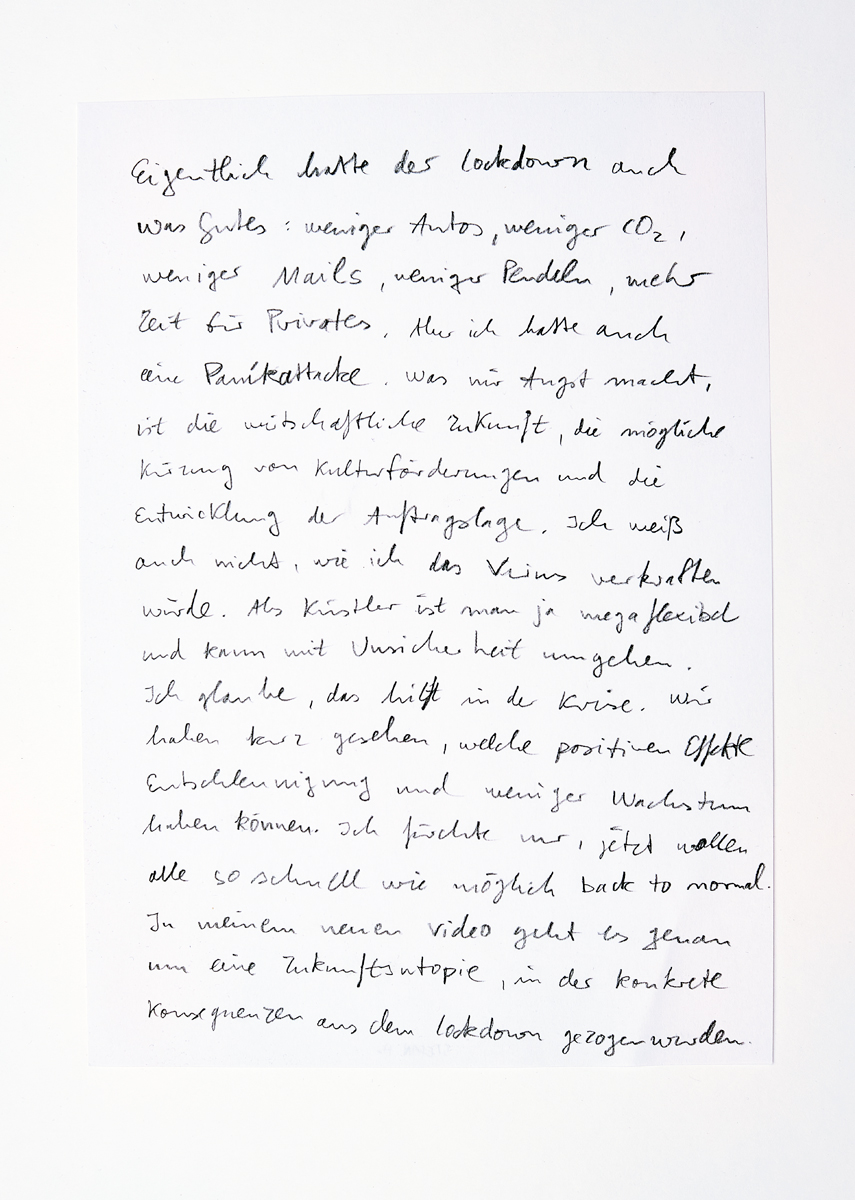 Eigentlich hatte der Lockdown auch
was Gutes: weniger Autos, weniger CO2,
weniger Mails, weniger Pendeln, mehr
Zeit für Privates. Aber ich hatte auch
eine Panikattacke. Was mir Angst macht,
ist die wirtschaftliche Zukunft, die mögliche
Kürzung von Kulturförderungen und die
Entwicklung der Auftragslage. Ich weiß
auch nicht, wie ich das Virus verkraften
würde. Als Künstler ist man ja megaflexibel
und kann mit Unsicherheit umgehen.
Ich glaube, das hilft in der Krise. Wir
haben kurz gesehen, welche positiven Effekte
Entschleunigung und weniger Wachstum
haben können. Ich fürchte nur, jetzt wollen
alle so schnell wie möglich back to normal.
In meinem neuen Video geht es genau
um eine Zukunftsutopie, in der konkrete
Konsequenzen aus dem Lockdown gezogen wurden.